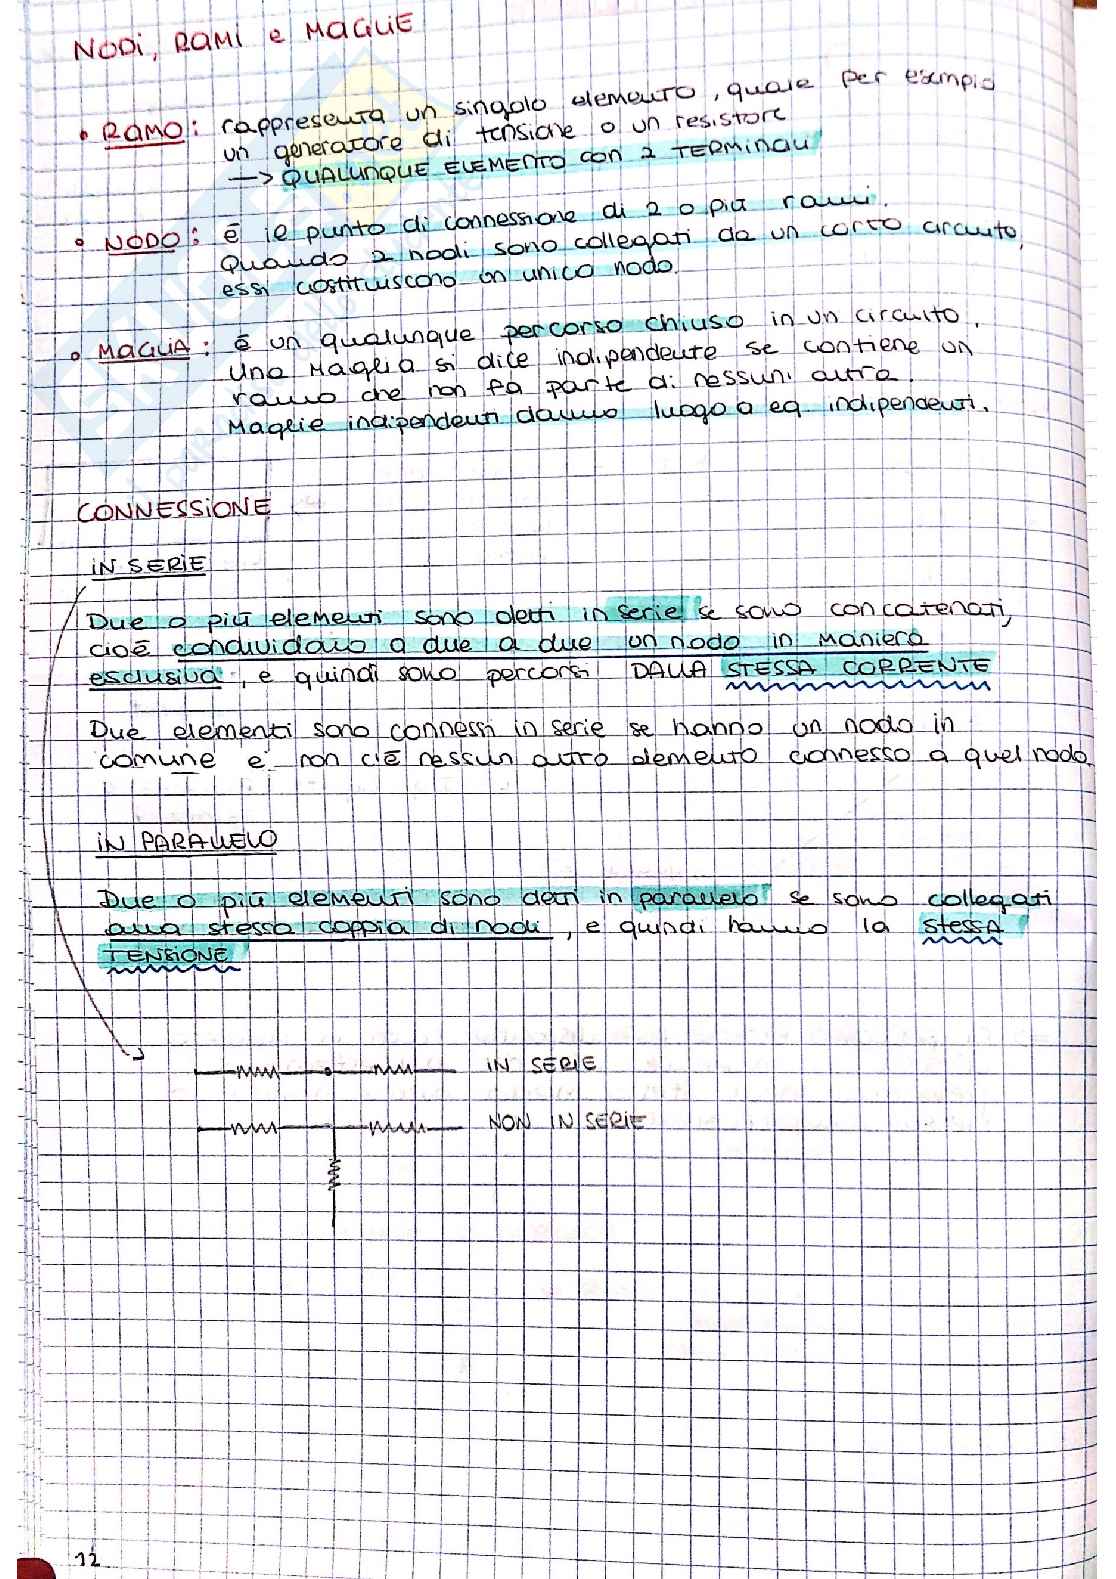 NODI, RAMI e MAGLIE
• RAMO: rappresenta un singolo elemento, quale per esempio
un generatore di tensione o un resistore
—> QUALUNQUE ELEMENTO con 2 TERMINALI
• NODO: è il punto di connessione di 2 o più rami.
Quando 2 nodi sono collegati da un corto circuito,
essi costituiscono un unico nodo.
• MAGLIA: è un qualunque percorso chiuso in un circuito.
Una Maglia si dice indipendente se contiene un
ramo che non fa parte di nessun'altra.
Maglie indipendenti danno luogo a eq. indipendenti.
CONNESSIONE
IN SERIE
Due o più elementi sono detti in serie se sono concatenati,
cioè condividono a due a due un nodo in maniera
esclusiva, e quindi sono percorsi DALLA STESSA CORRENTE
Due elementi sono connessi in serie se hanno un nodo in
comune e non c'è nessun altro elemento connesso a quel nodo.
IN PARALLELO
Due o più elementi sono detti in parallelo se sono collegati
alla stessa coppia di nodi, e quindi hanno la stessa
TENSIONE
IN SERIE
NON IN SERIE
12